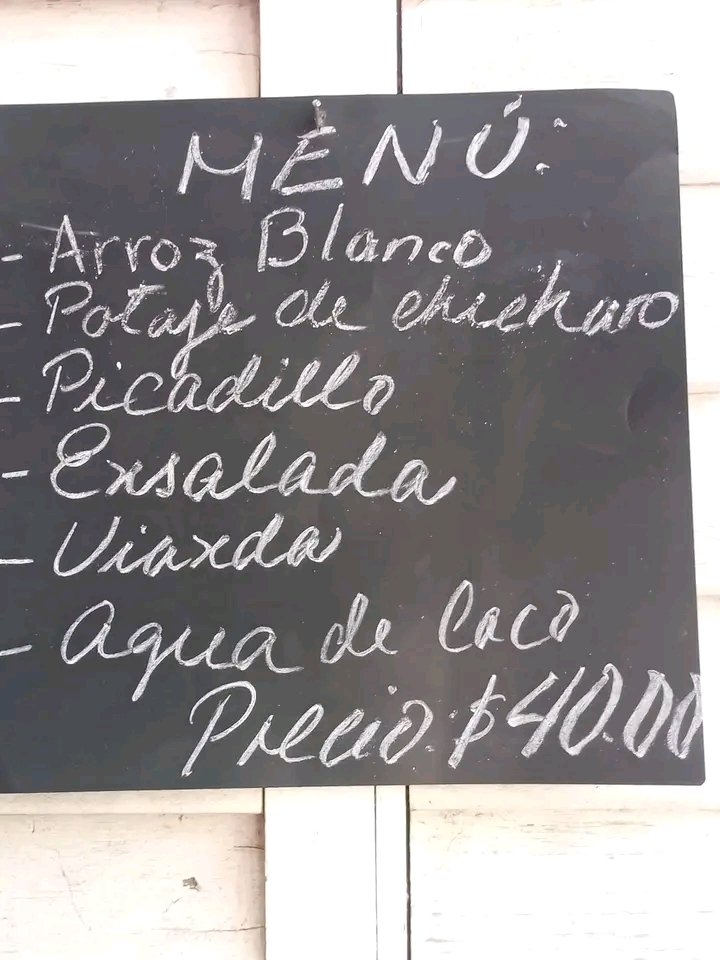 MENÚ:
- Arroz Blanco
- Potaje de chicharo
- Picadillo
- Ensalada
- Vianda
- Agua de Coco
Precio: $40.00